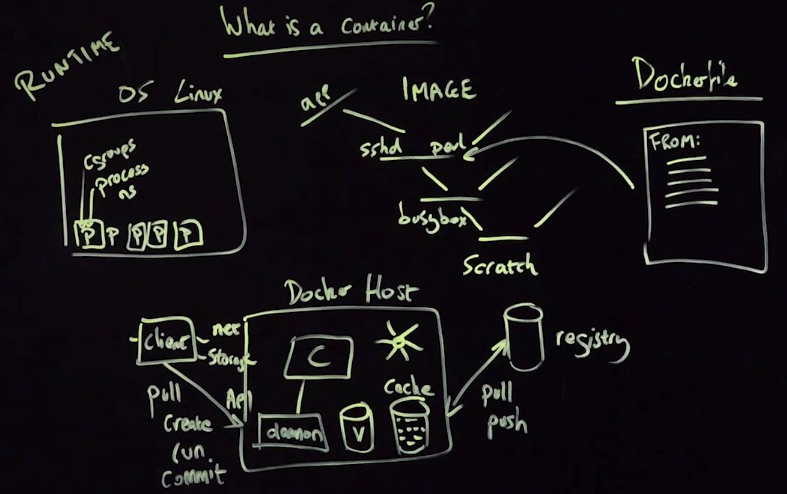 What is a Container?
RUNTIME
OS Linux
cgroups
process
ns
P P P P P
IMAGE
app
sshd perl
busybox
Scratch
Dockerfile
FROM:
Docker Host
client
net
Storage
pull
API
Create
run.
Commit
C
daemon
V
Cache
registry
pull
push